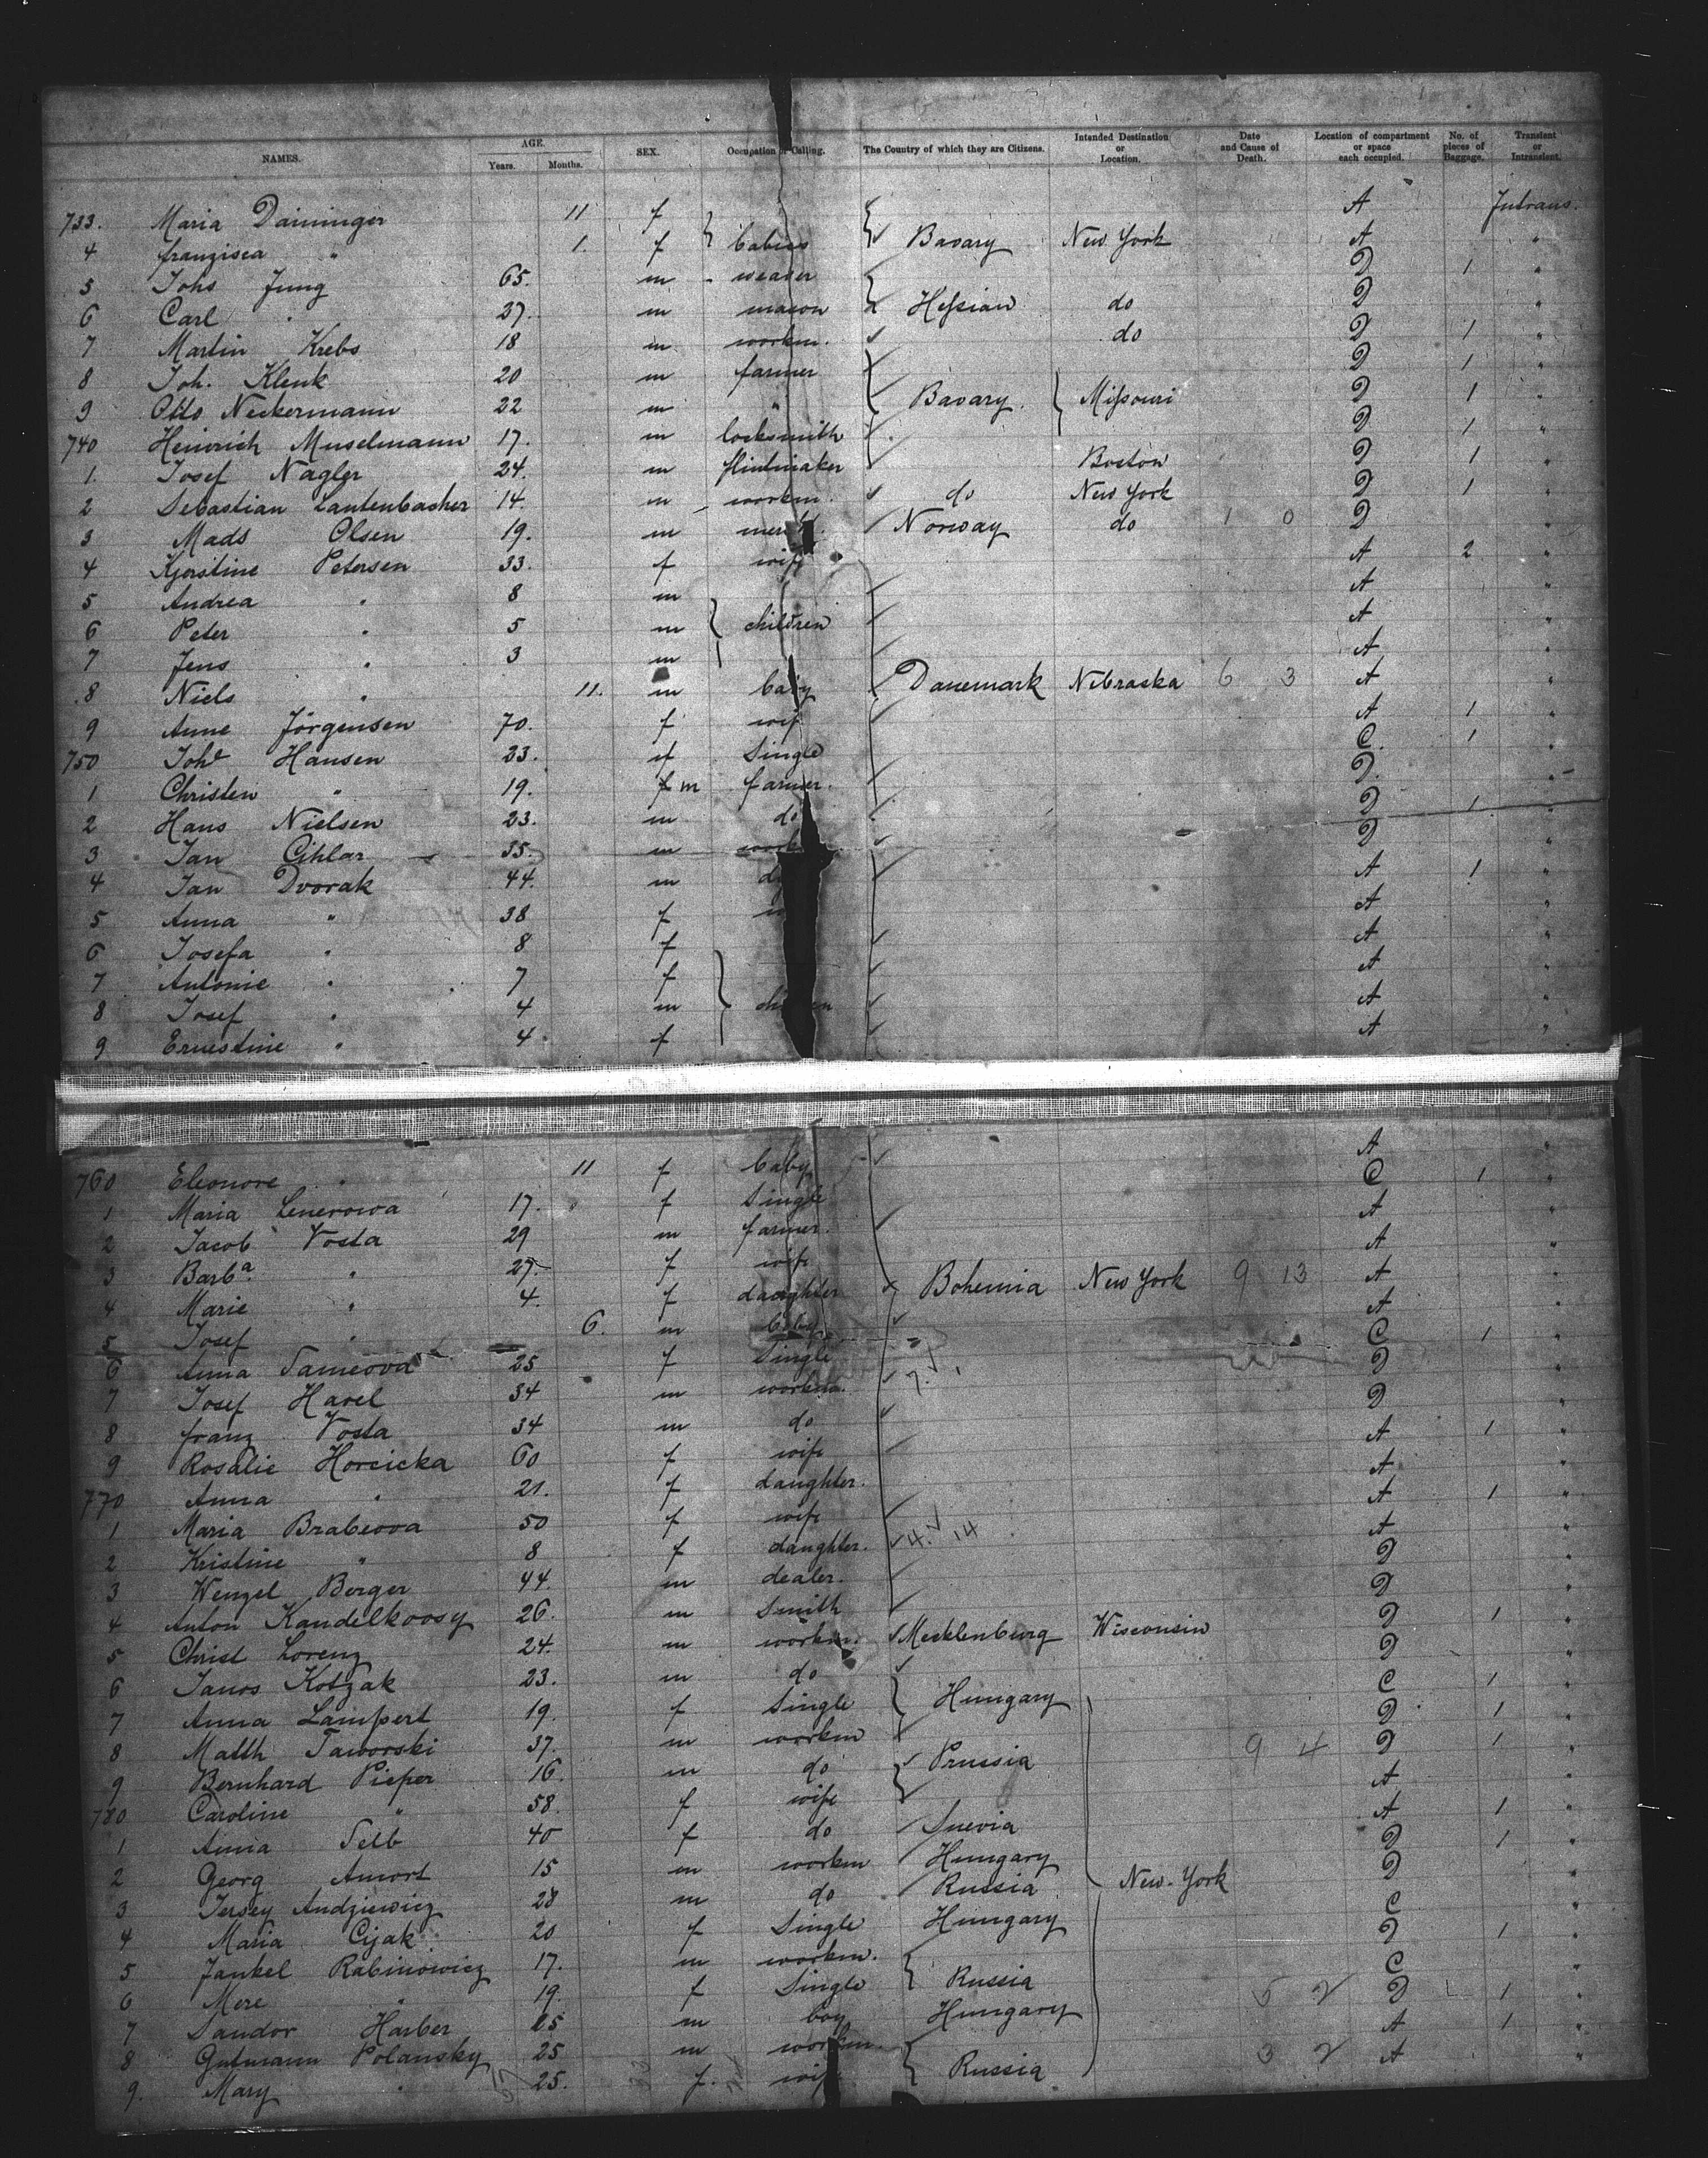 NAMES. AGE. Years. Months. SEX. Occupation or Calling. The Country of which they are Citizens. Intended Destination or Location. Date and Cause of Death. Location of compartment or space each occupied. No. of pieces of Baggage. Transient or Intransient.
733. Maria Daininger 11 f A Intrans.
4 franzisca " 1. f babies Bavary New York A "
5 Johs Jung 65. m weaver D 1 "
6 Carl " 37. m mason Hessian do D "
7 Martin Krebs 18 m workm. do D 1 "
8 Joh. Klenk 20 m farmer D 1 "
9 Otto Neckermann 22 m " Bavary. Missouri D 1 "
740 Heinrich Muselmann 17. m locksmith D 1 "
1. Josef Nagler 24. m Boston D 1 "
2 Sebastian Lautenbacher 14. m workm. do New York D 1 "
3 Mads Olsen 19. m Norway do 1 0 D "
4 Kjerstine Petersen 33. f wife A 2 "
5 Andrea " 8 m A "
6 Peter " 5 m children A "
7 Jens " 3 m A "
8 Niels " 11. m baby Danemark Nebraska 6 3 A "
9 Anne Jörgensen 70. f wife A 1 "
750 Hansen 23. f Single C. 1 "
1 Christen " 19. f m farmer. D. "
2 Hans Nielsen 23. m do D 1 "
3 Jan Cihlar 35. m work D "
4 Jan Dvorak 44. m A 1 "
5 Anna " 38 f A "
6 Josefa " 8 f A "
7 Antonie " 7 f A "
8 Josef " 4 m children A "
9 Ernestine " 4 f A "
760 Eleonore " 11 f baby A "
1 Maria Lenerowa 17. f Single C 1 "
2 Jacob Vosta 29 m farmer. A "
3 Barba. " 27. f wife A "
4 Marie " 4. f daughter Bohemia New York 9 13 A "
5 Josef " 6. m baby A "
6 Anna 25 f Single C 1 "
7 Josef Havel 34 m workm. D "
8 franz Vosta 34 m do D "
9 Rosalie Horcicka 60 f wife A 1 "
770 Anna " 21. f daughter. A "
1 Maria Brabcova 50 f wife A 1 "
2 Kristine " 8 f daughter. 4. 14 A "
3 Wenzel Berger 44. m dealer. D "
4 Anton Kandelkoosy 26. m Smith D "
5 Christ Lorenz 24. m workm. Mecklenburg Wisconsin D 1 "
6 Janos Kotzak 23. m do D "
7 Anna Lampert 19. f Single Hungary C 1 "
8 Matth Jaworski 37. m workm D 1 "
9 Bernhard Pieper 16. m do Prussia 9 4 D 1 "
780 Caroline " 58. f wife A "
1 Anna Selb 40 f do Suevia A 1 "
2 Georg Amort 15 m workm Hungary D 1 "
3 Jersey Andziewicz 28 m do Russia New-York D "
4 Maria Cijak 20 f Single Hungary C "
5 Jankel Rabinowicz 17. m workm. D 1 "
6 Mere " 19. f Single Russia C "
7 Sandor Harber m boy Hungary 5 2 D 1 "
8 Gutmann Polansky 25 m workm. A 1 "
9. Mary " 25. f. wife Russia 3 2 A "